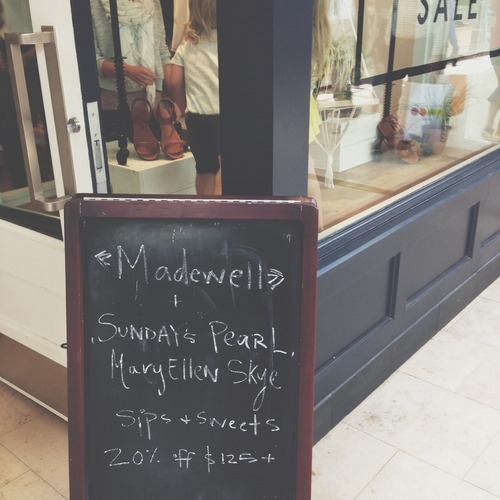 SALE
«Madewell»
+
SUNDAY's PearL,
MaryEllen Skye
Sips + Sweets
20% off $125+